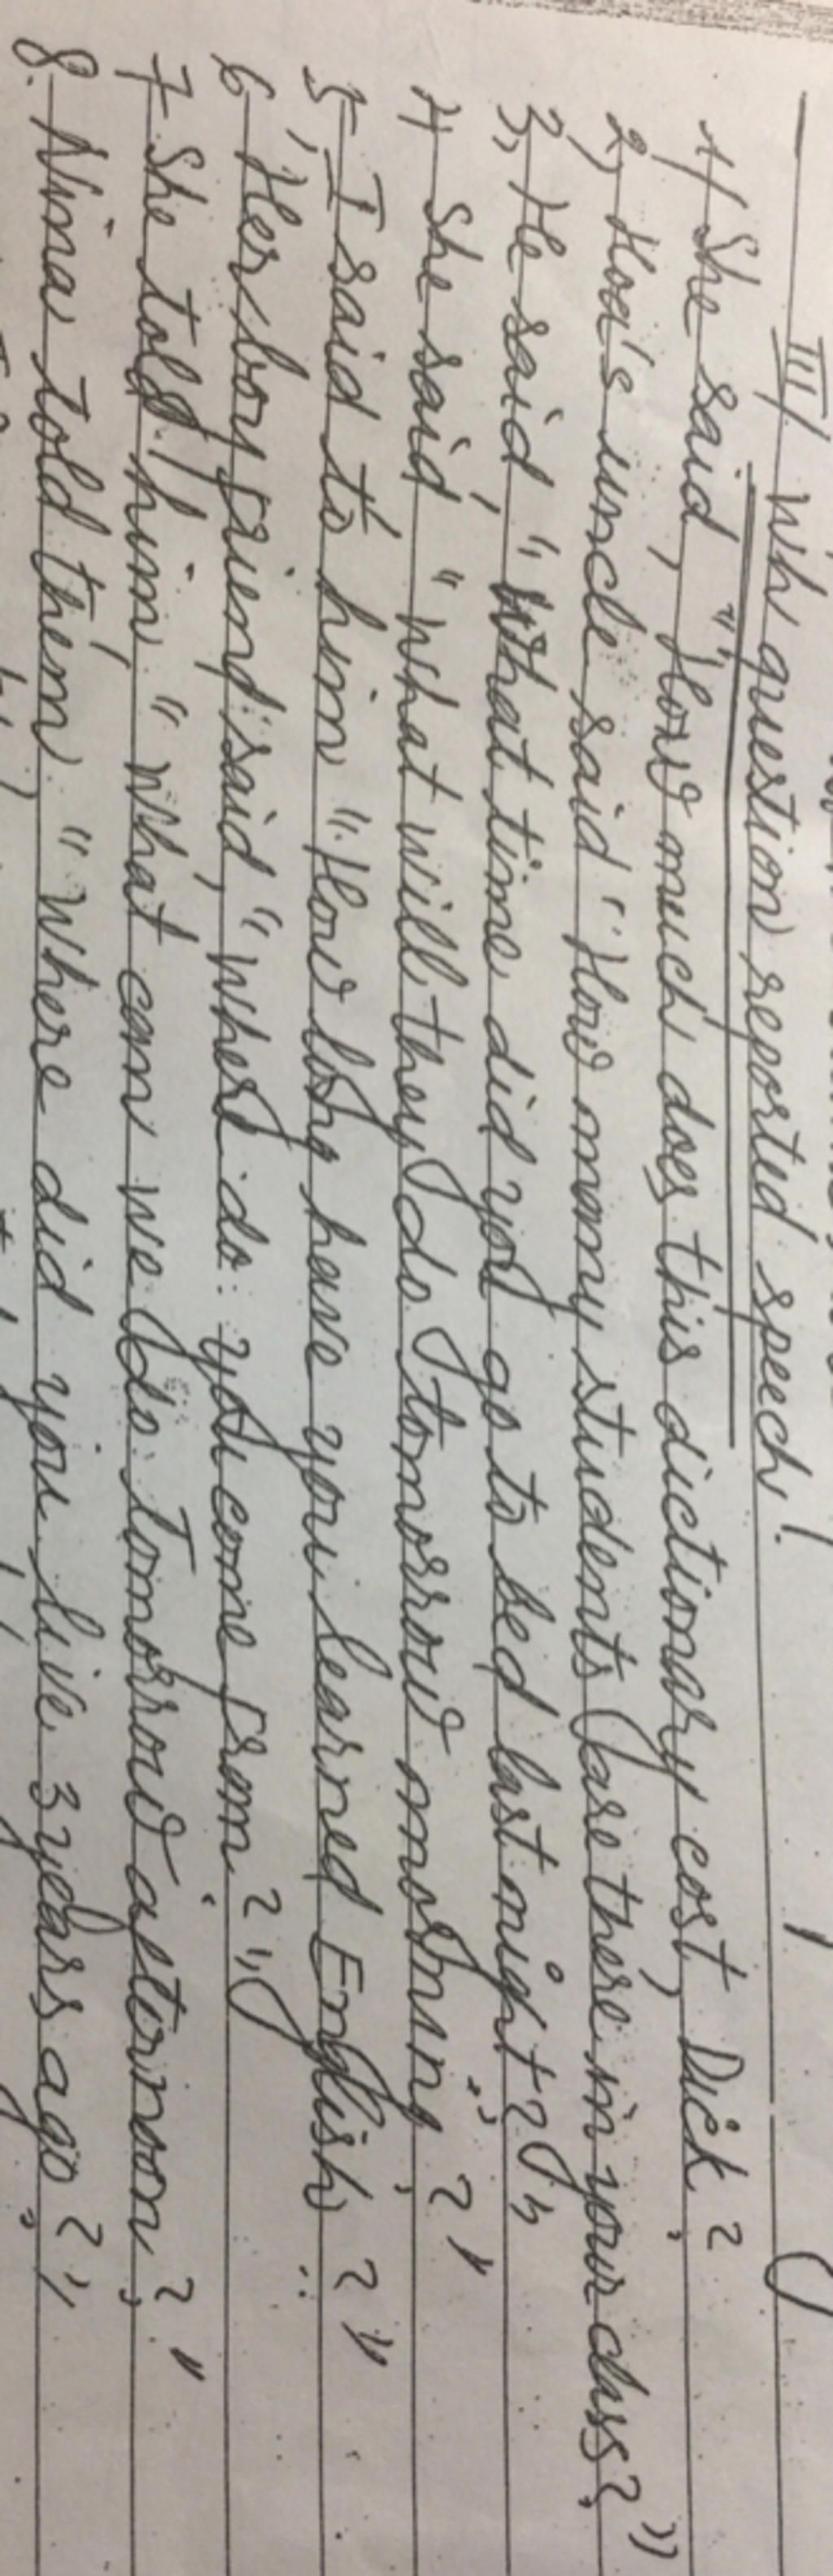 III/ Wh question reported speech!
1/ She said, "How much does this dictionary cost, Dick?
2, Hoa's uncle said "How many students are there in your class?"
3, He said, "What time did you go to bed last night?"
4, She said "what will they do tomorrow morning?"
5, I said to him "How long have you learned English?"
6, Her boy friend said, "where do you come from?"
7, She told him, "what can we do tomorrow afternoon?"
8. Nina told them, "where did you live 3 years ago?"